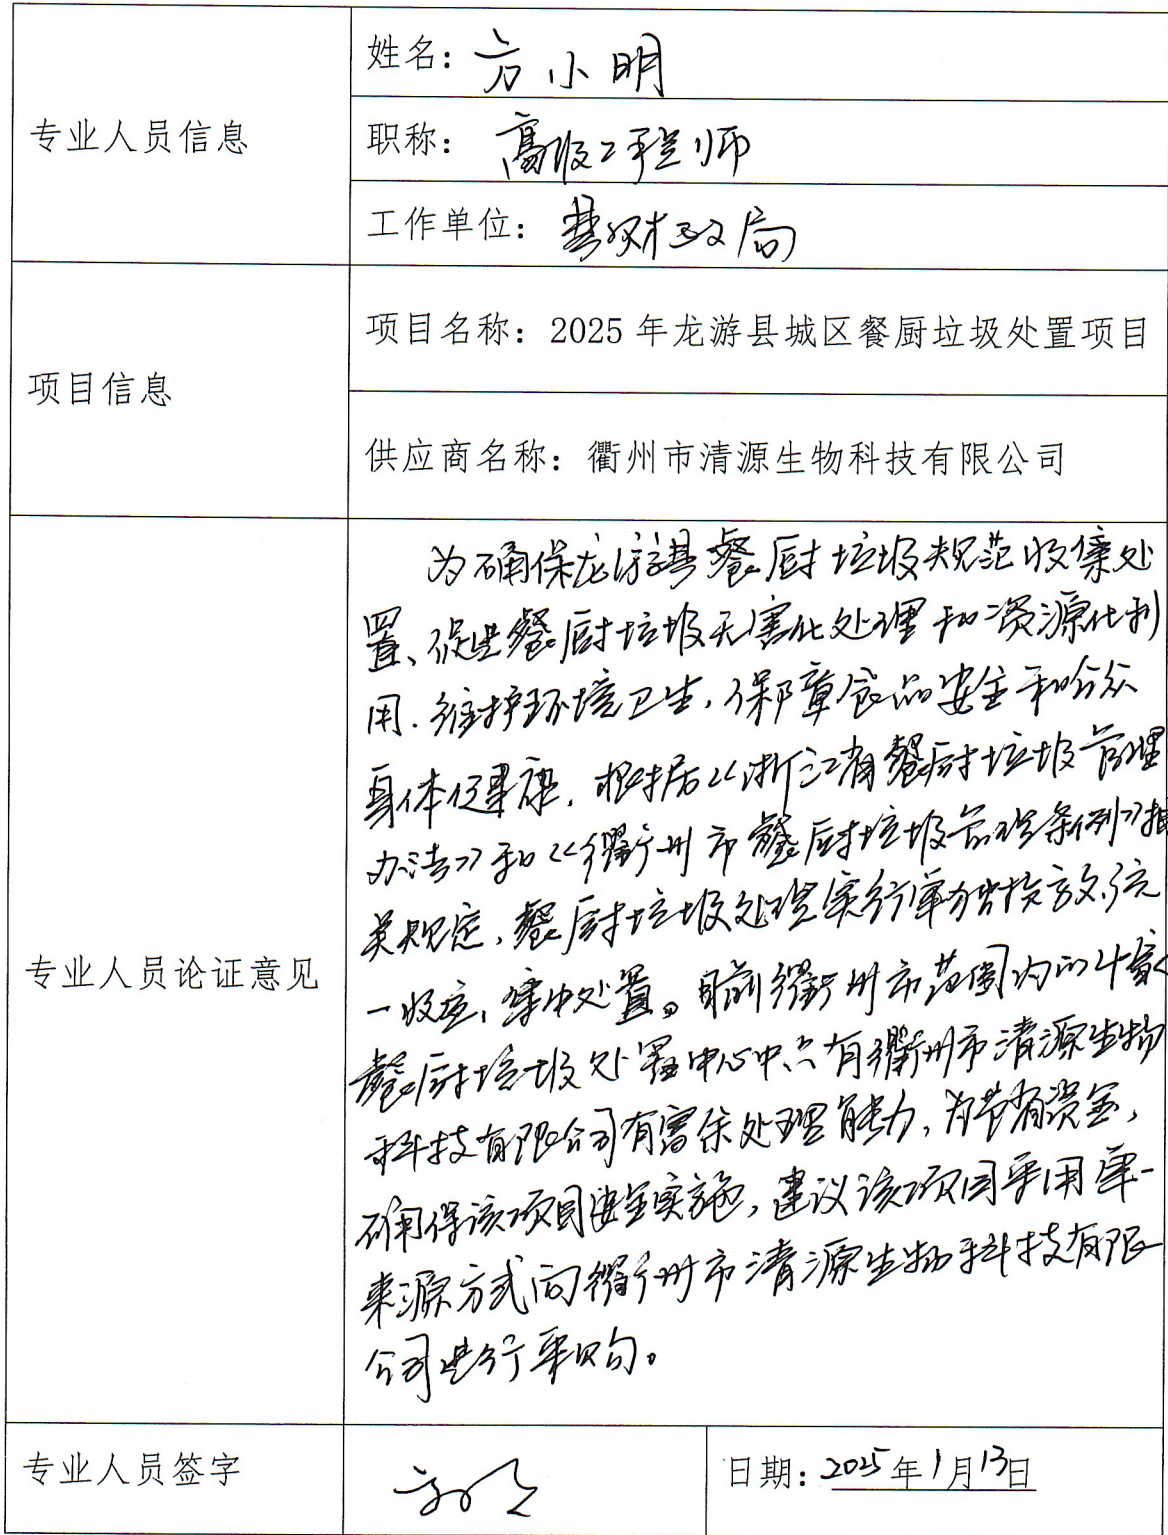 专业人员信息
姓名：方小明
职称：高级工程师
工作单位：县财政局
项目信息
项目名称：2025年龙游县城区餐厨垃圾处置项目
供应商名称：衢州市清源生物科技有限公司
专业人员论证意见
为确保龙游县餐厨垃圾规范收集处
置、促进餐厨垃圾无害化处理和资源化利
用.维护环境卫生,保障食品安全和公众
身体健康,根据《浙江省餐厨垃圾管理
办法》和《衢州市餐厨垃圾管理条例》相
关规定,餐厨垃圾处理实行单独投放、统
一收运、集中处置。目前衢州市范围内的4家
餐厨垃圾处置中心中只有衢州市清源生物
科技有限公司有富余处理能力,为节省资金,
确保该项目安全实施,建议该项目采用单一
来源方式向衢州市清源生物科技有限
公司进行采购。
专业人员签字
方小明
日期：2025年1月13日